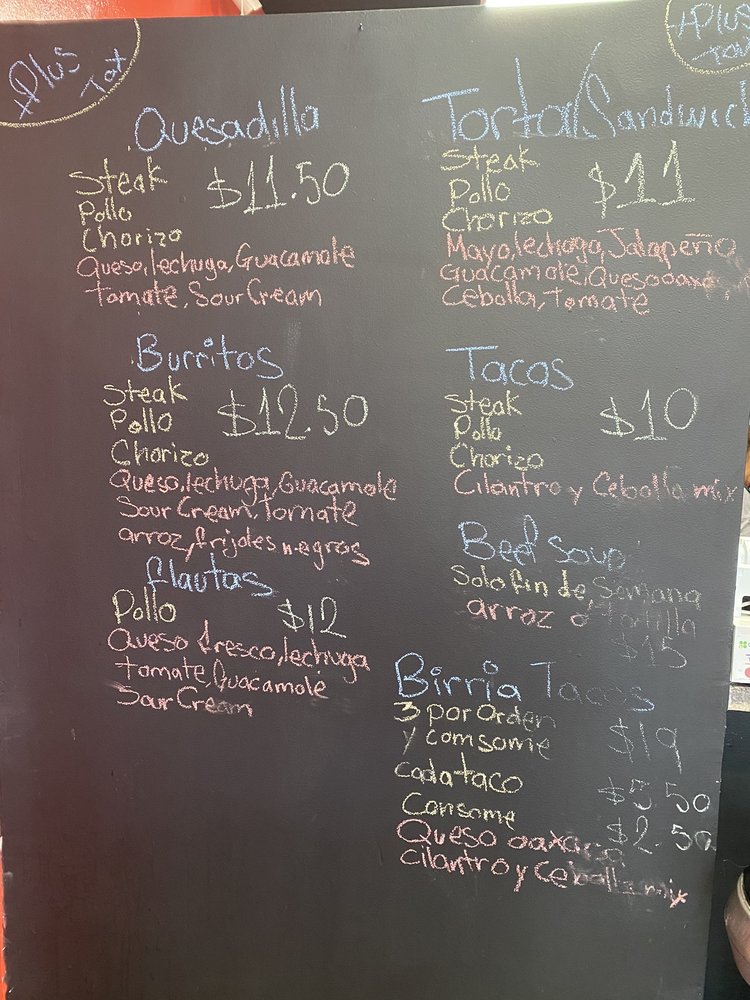 +Plus
Tax
Quesadilla
Steak
Pollo
Chorizo
$11.50
Queso, lechuga, Guacamole
tomate, Sour Cream
Burritos
Steak
Pollo
Chorizo
$12.50
Queso, lechuga, Guacamole
Sour Cream, Tomate
arroz, frijoles negros
flautas
Pollo
$12
Queso fresco, lechuga
Tomate, Guacamole
Sour Cream
+Plus
Tax
Torta/Sandwich
Steak
Pollo
Chorizo
$11
Mayo, lechuga, Jalapeño
Guacamole, Queso
Cebolla, Tomate
Tacos
Steak
Pollo
Chorizo
$10
Cilantro y Cebolla mix
Beef Soup
Solo fin de Semana
arroz o tortilla
$15
Birria Tacos
3 por Orden
y comsome
$19
cada taco
$3.50
Consome
$2.50
Queso
cilantro y Cebolla mix